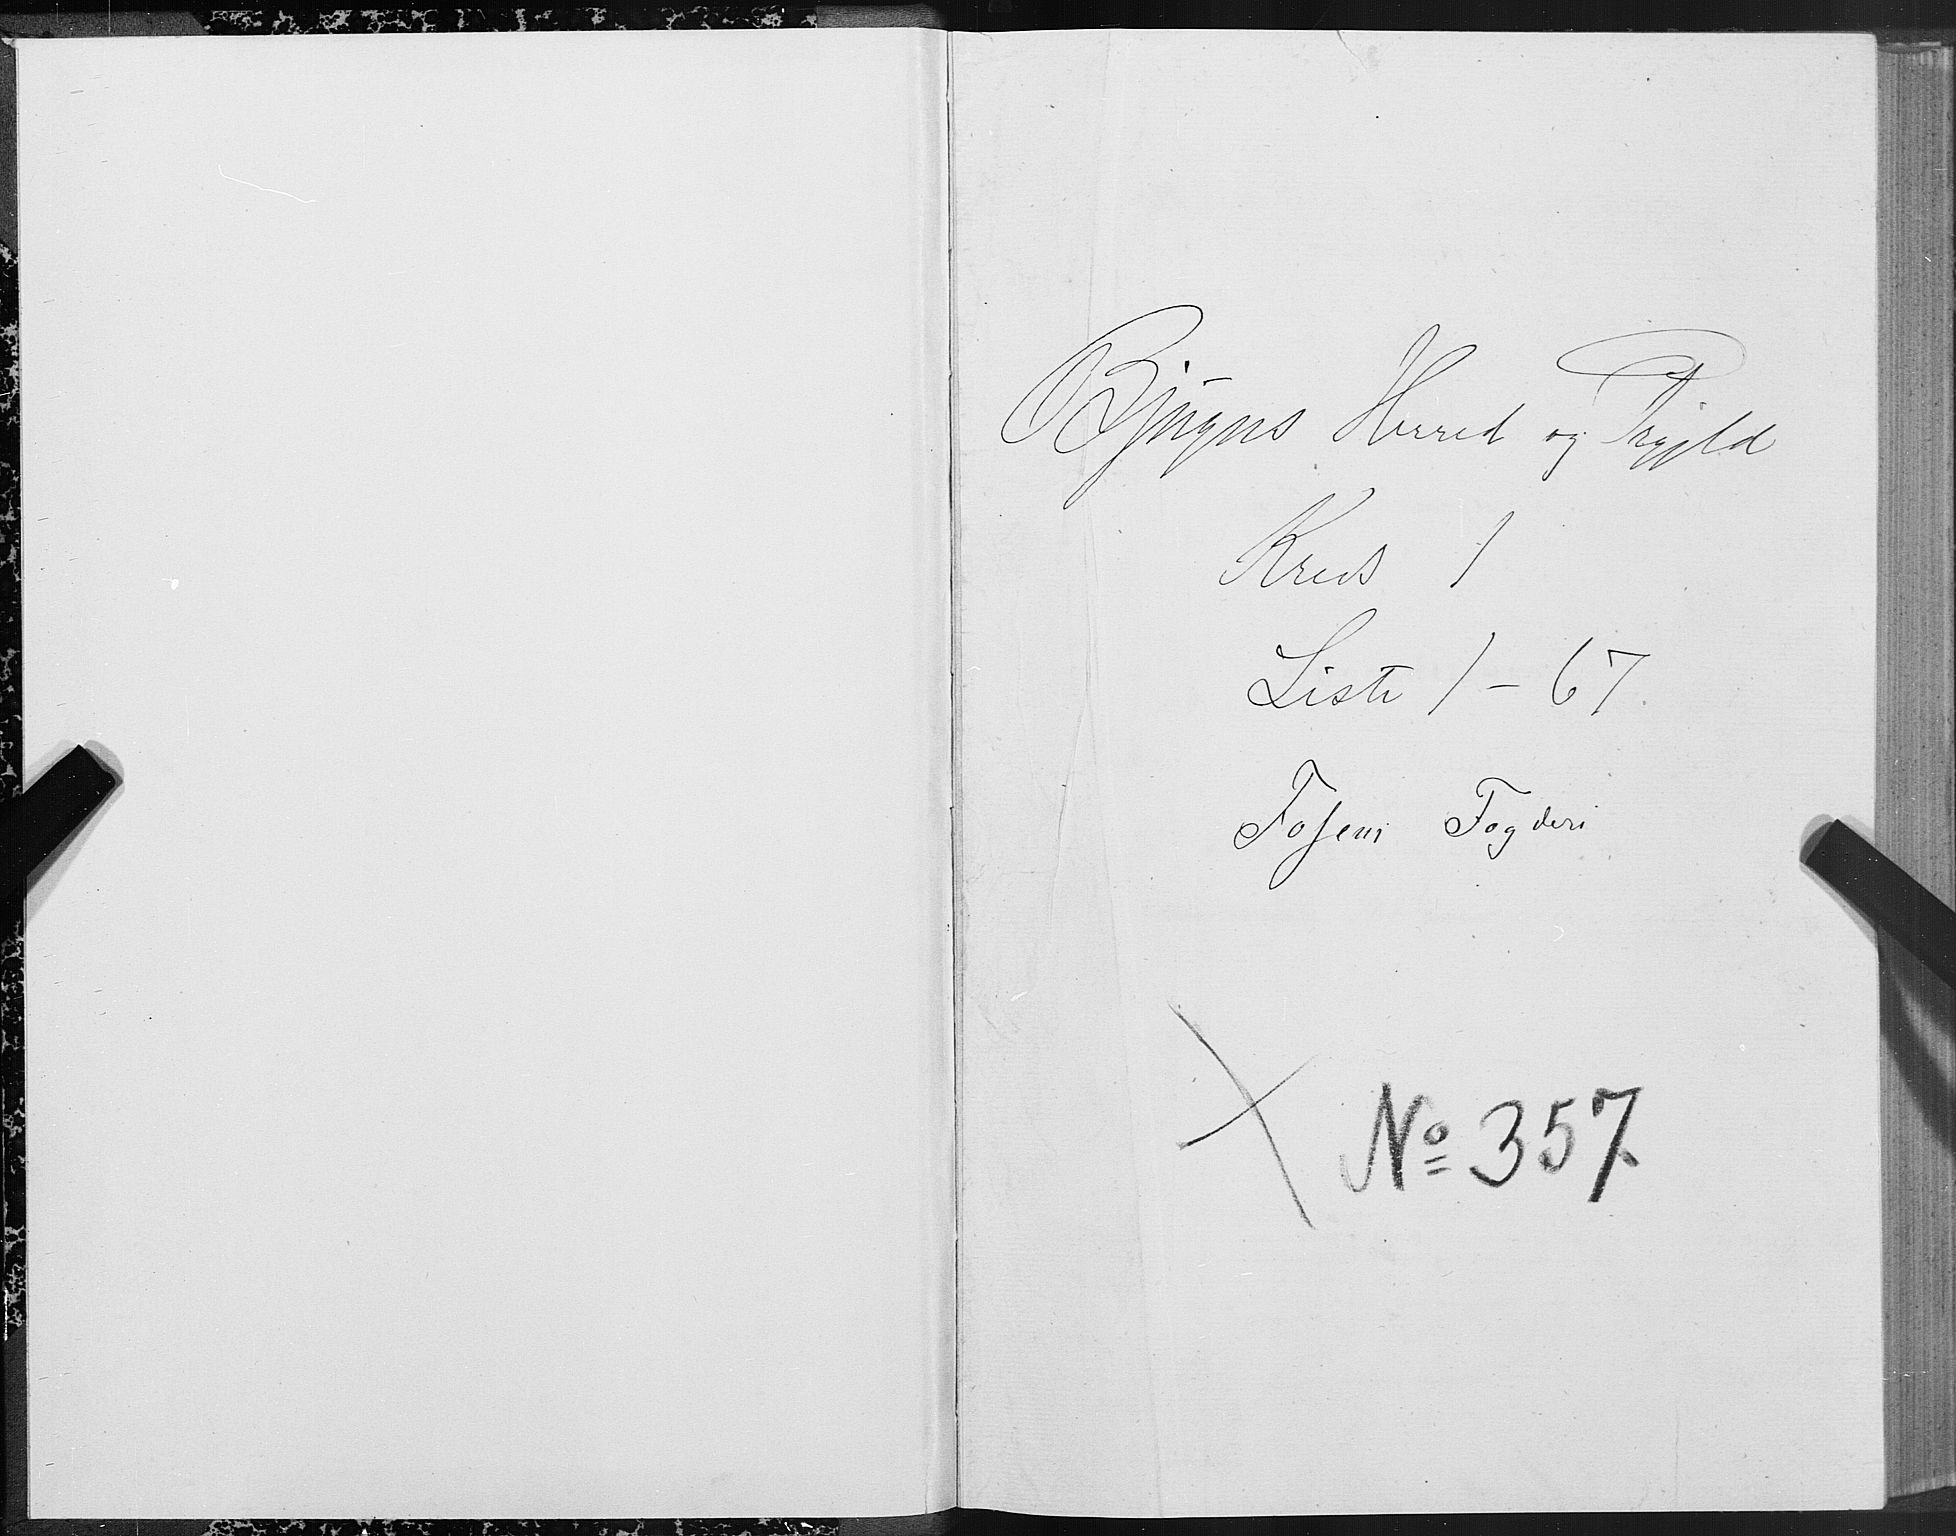 Bjugns Herred og Prgjld
Kreds 1
Liste 1 - 67.
Fosens Fogderi
X No 357.